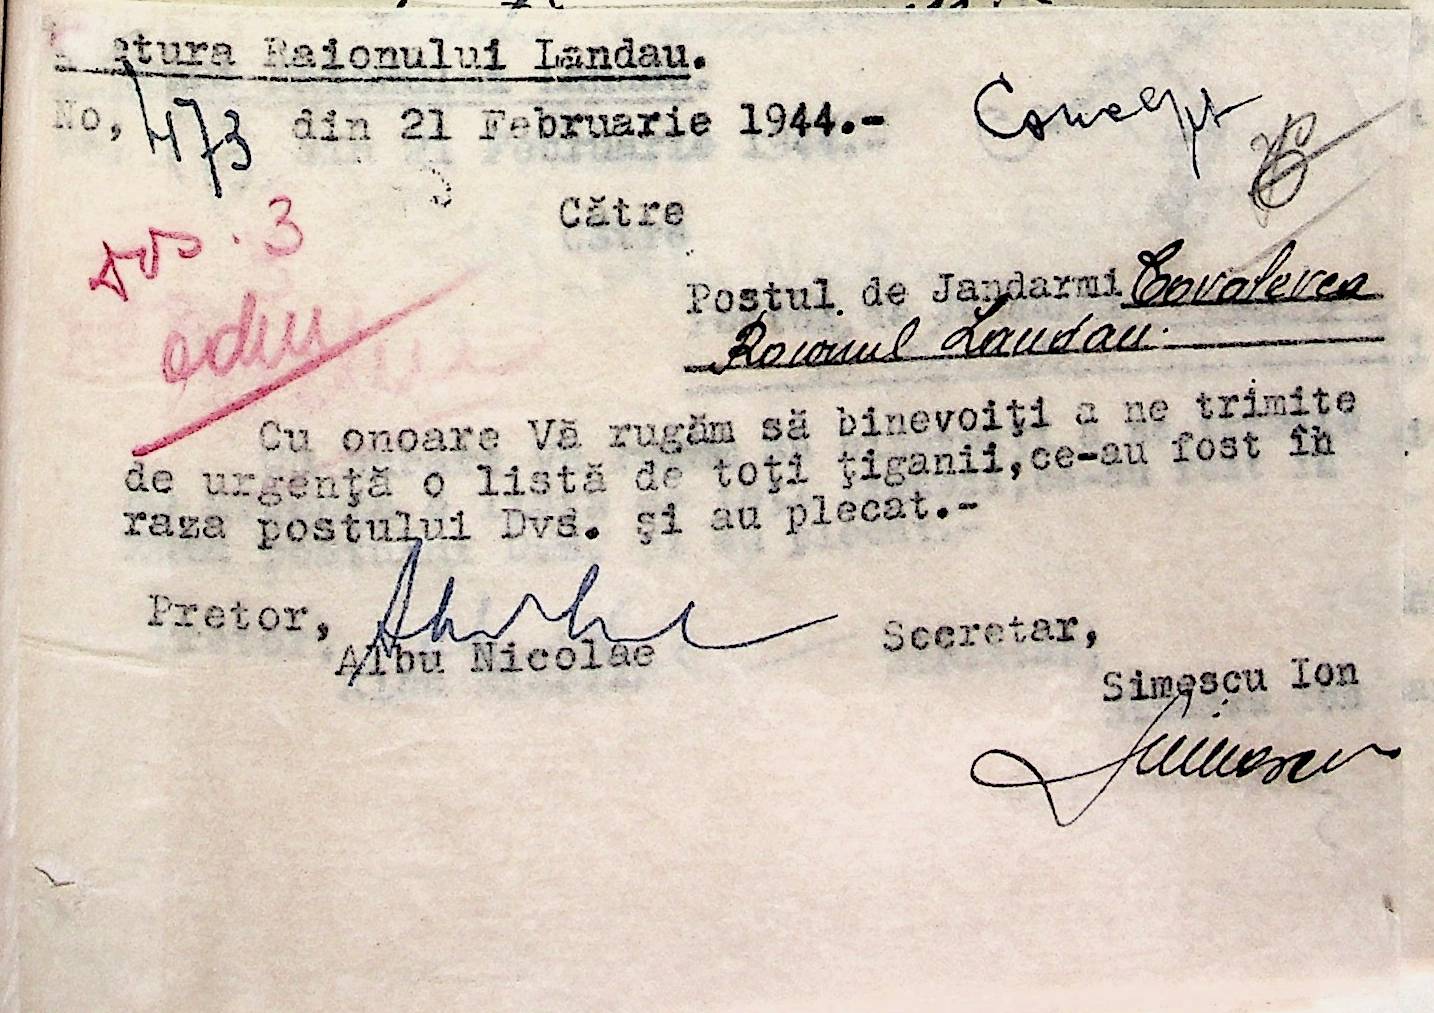 Pretura Raionului Landau.
No, 473 din 21 Februarie 1944.-
Concept
Dos. 3
Către
Postul de Jandarmi Covalevca
Raionul Landau.
Cu onoare Vă rugăm să binevoiţi a ne trimite
de urgenţă o listă de toţi ţiganii,ce-au fost în
raza postului Dvs. şi au plecat.-
Pretor,
Albu Nicolae
Secretar,
Simescu Ion